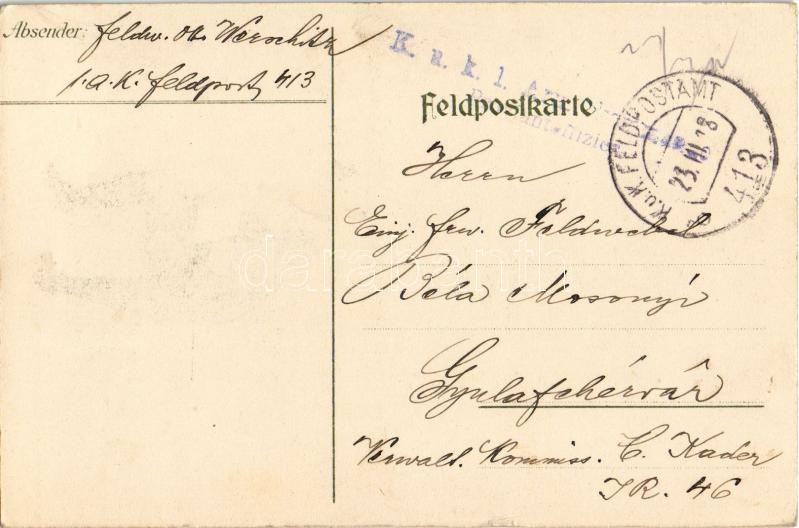 Absender: Feldw. Otto Werschitz
1. A. K. Feldpost 413
K. u. k. 1.
Feldpostkarte
K.u.K. FELDPOSTAMT
23.VII.18
413
Herrn
Einj. frw. Feldwebel
Béla Mosonyi
Gyulafehérvár
Verwalt. Kommiss. C. Kader
I.R. 46
darabanth